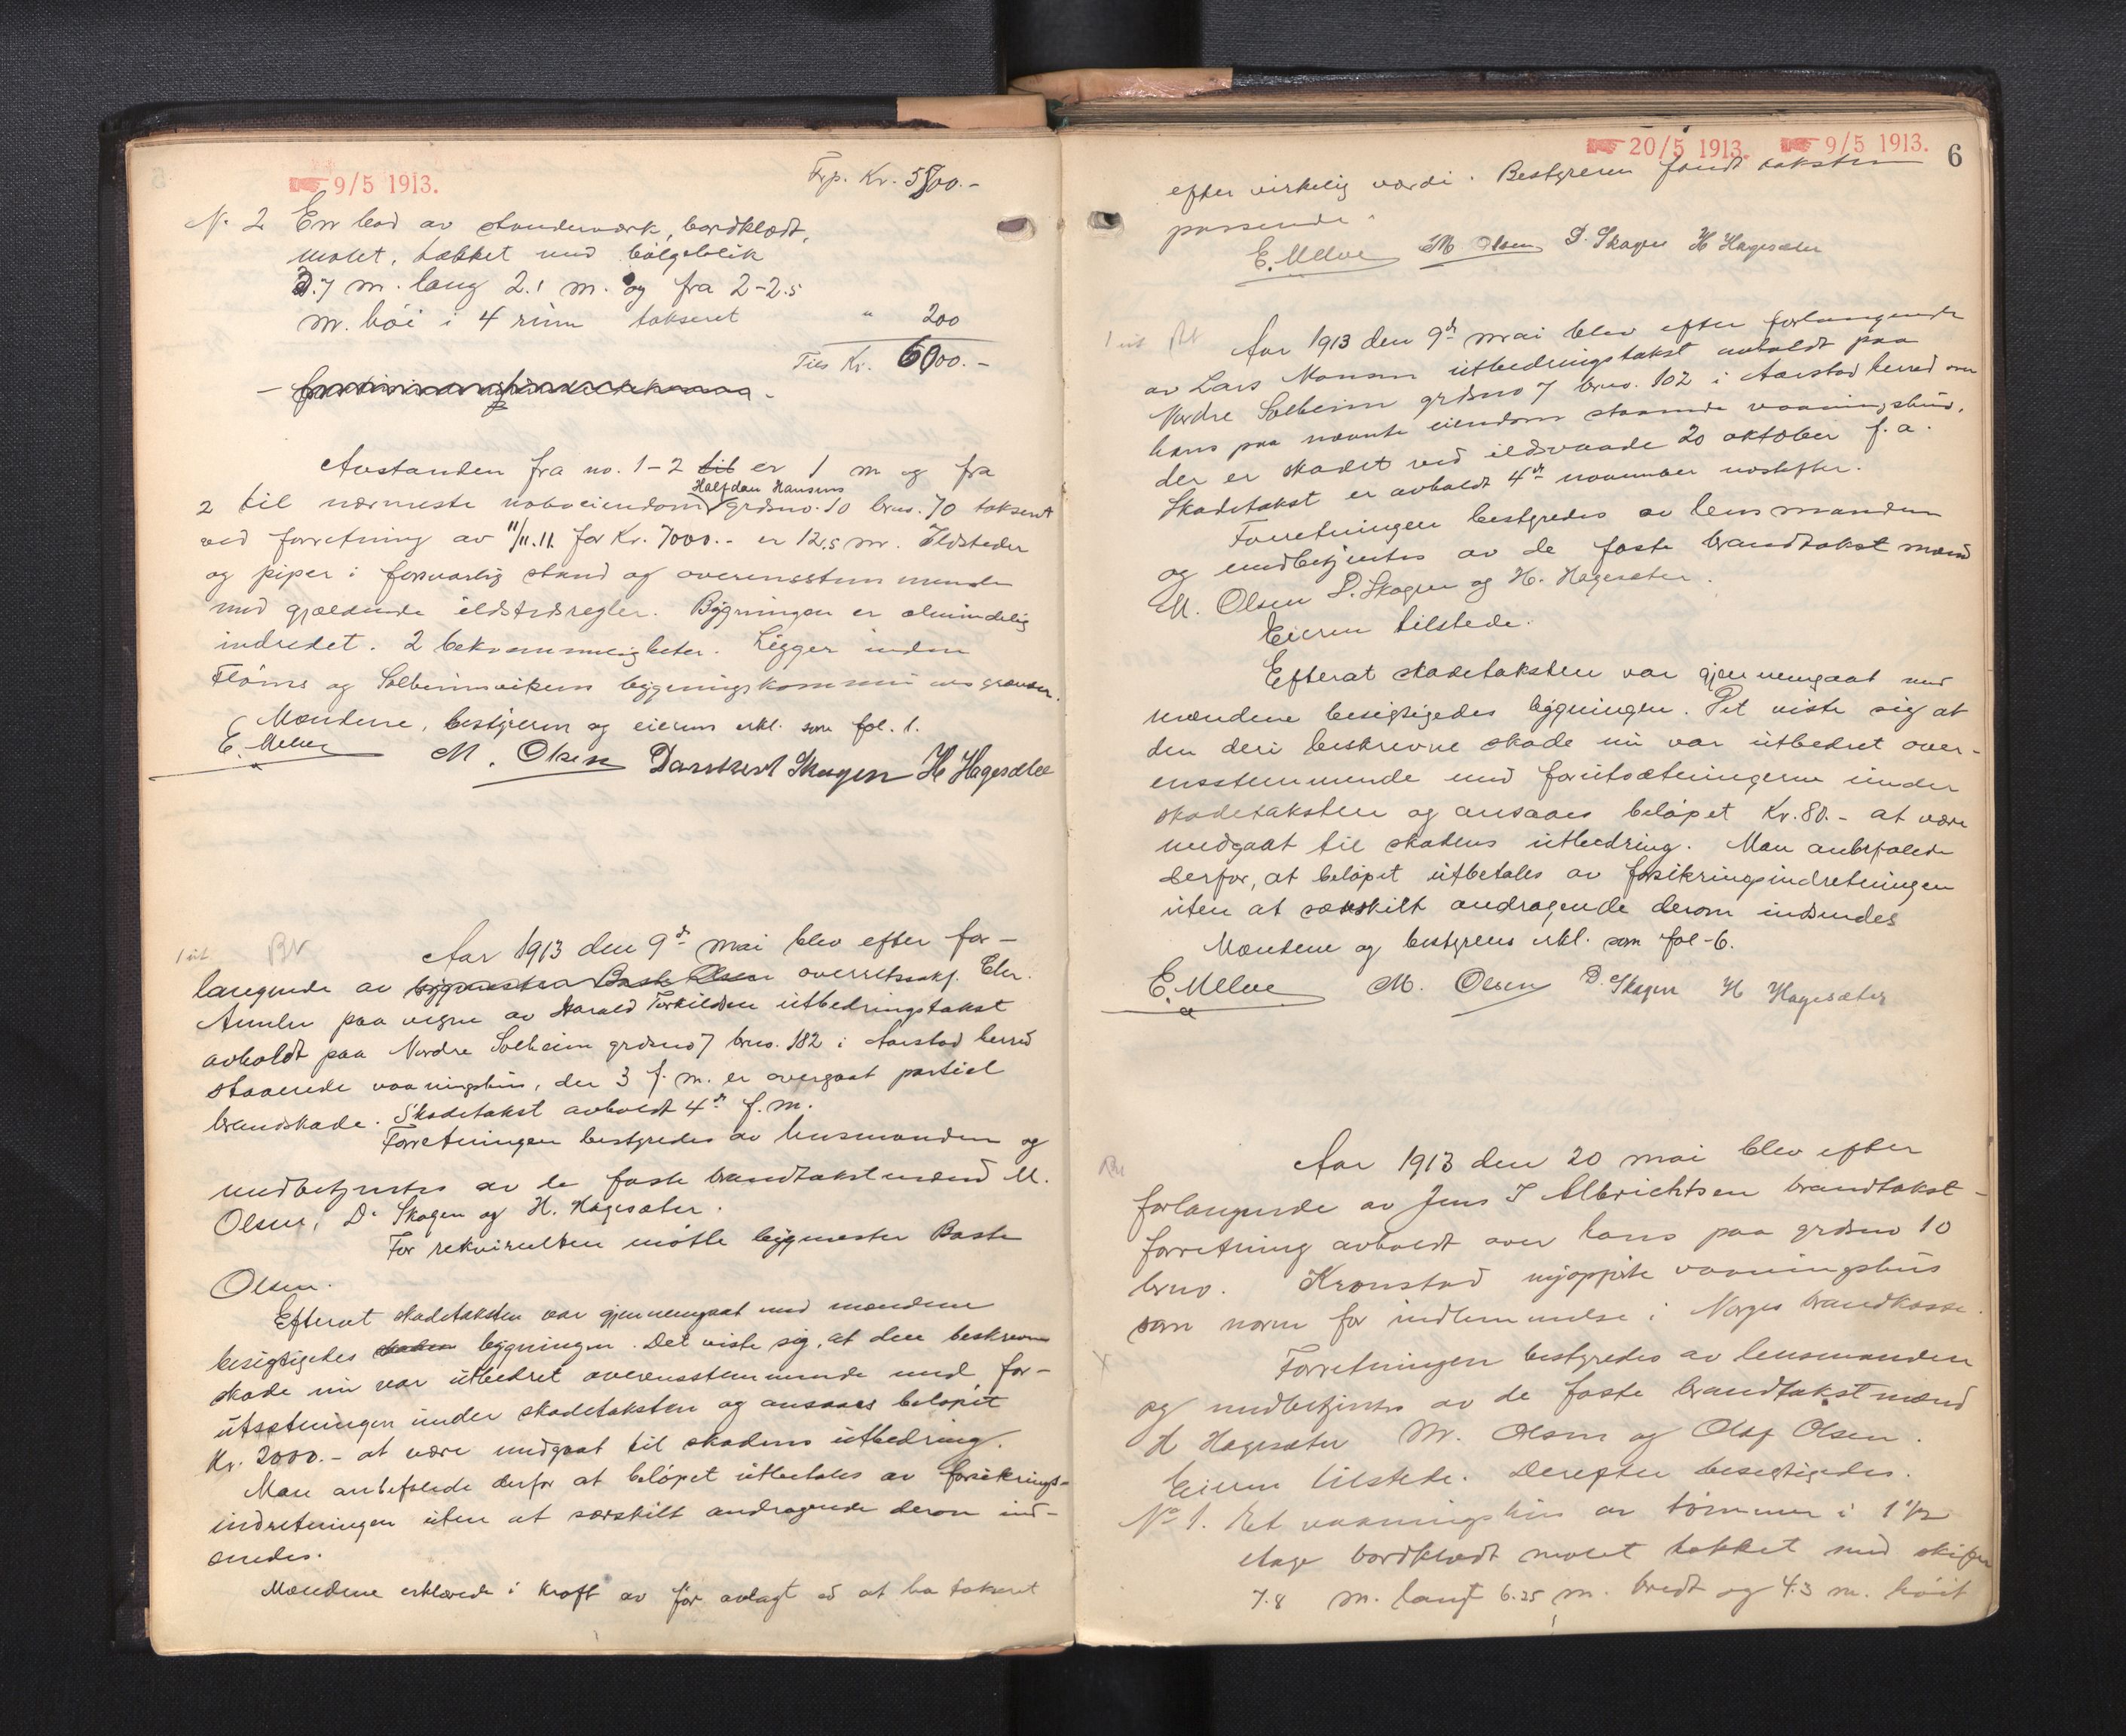 9/5 1913.
Frp. Kr. 5800.-
No 2 En bod av stenderverk, bordklædt,
malet, tækket med bølgeblik
3.7 m. lang 2.1 m. og fra 2-2.5
m. høi i 4 rum takseret " 200
Tils Kr. 6000.-
Avstanden fra no. 1-2 til er 1 m og fra
2 til nærmeste naboeiendom Halfdan Hansens grdsno. 10 brno. 70 takseret
ved forretning av 11/11.11. for Kr. 7000.- er 12.5 m. Ildsteder
og piper i forsvarlig stand og overensstemmende
med gjældende ildstedsregler. Bygningen er almindelig
indredet. 2 bekvemmeligheter. Ligger inden
Fløens og Solheimsvikens bygningskommunes grænser.
Mændene, bestyreren og eieren erkl. som fol. 1.
E. Melve M. Olsen Danckert Skagen H Hagesæter
1 ut. Bt
Aar 1913 den 9de mai blev efter for-
langende av bygmester Baste Olsen overretssakf. Chr.
paa vegne av Harald Torkildsen utbedringstakst
avholdt paa Nordre Solheim grdsno 7 brno. 182 i Aarstad herred
staaende vaaningshus, der 3 f. m. er overgaat partiel
brandskade. Skadetakst avholdt 4de f. m.
Forretningen bestyredes av lensmanden og
medbetjentes av de faste brandtakstmænd M.
Olsen, D. Skagen og H. Hagesæter.
For rekvirenten møtte bygmester Baste
Olsen.
Efterat skadetaksten var gjennemgaat med mændene
besigtigedes bygningen. Det viste sig, at den beskrevne
skade nu var utbedret overensstemmende med for-
utsetningen under skadetaksten og ansaaes beløpet
Kr. 2000.- at være medgaat til skadens utbedring.
Man anbefalede derfor at beløpet utbetales av forsikrings-
indretningen uten at særskilt andragende derom ind-
sendes.
Mændene erklærede i kraft av før avlagt ed at ha takseret
20/5 1913. 9/5 1913. 6
efter virkelig værdi. Bestyreren fandt taksten
passende.
E. Melve M Olsen D. Skagen H Hagesæter
1 ut Bt
Aar 1913 den 9de mai blev efter forlangende
av Lars Monsen utbedringstakst avholdt paa
Nordre Solheim grdsno 7 brno. 102 i Aarstad herred over
hans paa nævnte eiendom staaende vaaningshus,
der er skadet ved ildsvaade 20 oktober f. a.
Skadetakst er avholdt 4de november næstefter.
Forretningen bestyredes av lensmanden
og medbetjentes av de faste brandtakstmænd
M. Olsen D. Skagen og H. Hagesæter.
Eieren tilstede.
Efterat skadetaksten var gjennemgaat med
mændene besigtigedes bygningen. Det viste sig at
den deri beskrevne skade nu var utbedret over-
ensstemmende med forutsætningerne under
skadetaksten og ansaaes beløpet Kr. 80.- at være
medgaat til skadens utbedring. Man anbefalede
derfor, at beløpet utbetales av forsikringsindretningen
uten at særskilt andragende derom indsendes
Mændene og bestyrens erkl. som fol-6.
E. Melve M. Olsen D. Skagen H Hagesæter
Bt
Aar 1913 den 20 mai blev efter
forlangende av Jens J Albrichtsen brandtakst-
forretning avholdt over hans paa grdsno 10
brno. Kronstad nyopførte vaaningshus
som norm for indlemmelse i Norges brandkasse.
Forretningen bestyredes av lensmanden
og medbetjentes av de faste brandtakstmænd
H Hagesæter M. Olsen og Olaf Olsen.
Eieren tilstede. Derefter besigtigedes.
No 1. Et vaaningshus av tømmer i 1 1/2
etage bordklædt malet tækket med skifer
7.8 m. langt 6.25 m. bredt og 4.3 m. høit